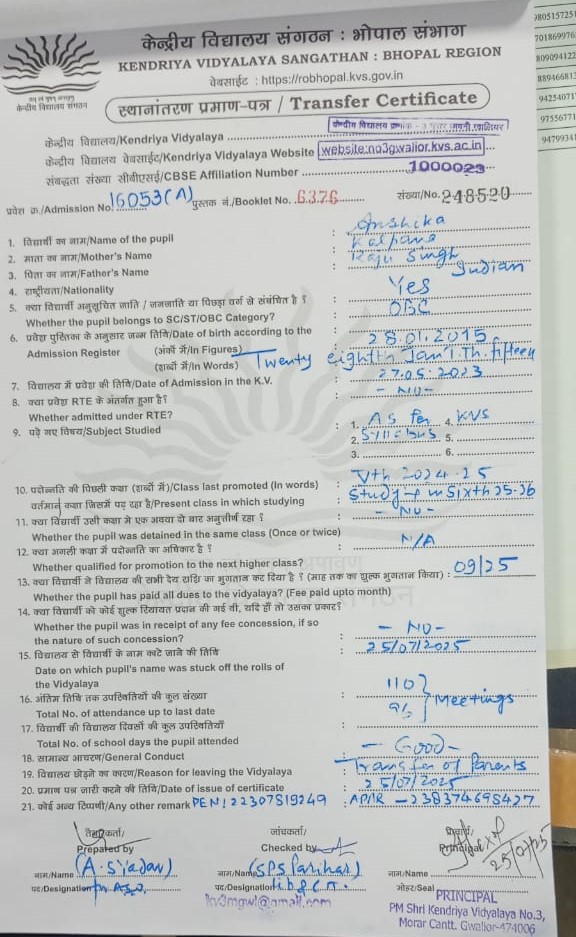 केन्द्रीय विद्यालय संगठन : भोपाल संभाग
KENDRIYA VIDYALAYA SANGATHAN : BHOPAL REGION
वेबसाईट : https://robhopal.kvs.gov.in
केन्द्रीय विद्यालय संगठन
स्थानांतरण प्रमाण-पत्र / Transfer Certificate
केन्द्रीय विद्यालय/Kendriya Vidyalaya
केन्द्रीय विद्यालय वेबसाईट/Kendriya Vidyalaya Website website:no3gwalior.kvs.ac.in
संबद्धता संख्या सीबीएसई/CBSE Affiliation Number 1000023
प्रवेश क्र./Admission No. 16053(A) पुस्तक नं./Booklet No. 6376 संख्या/No. 248520
1. विद्यार्थी का नाम/Name of the pupil : Anshika
2. माता का नाम/Mother's Name : Kalpana
3. पिता का नाम/Father's Name : Raju Singh
4. राष्ट्रीयता/Nationality : Indian
5. क्या विद्यार्थी अनुसूचित जाति / जनजाति या पिछड़ा वर्ग से संबंधित है ? : Yes
Whether the pupil belongs to SC/ST/OBC Category? : OBC
6. प्रवेश पुस्तिका के अनुसार जन्म तिथि/Date of birth according to the
Admission Register (अंकों में/In Figures) : 28.01.2015
(शब्दों में/In Words) Twenty eighth Jan'l.Th.fifteen
7. विद्यालय में प्रवेश की तिथि/Date of Admission in the K.V. : 27.05.2023
8. क्या प्रवेश RTE के अंतर्गत हुआ है? : - NO -
Whether admitted under RTE?
9. पढ़े गए विषय/Subject Studied : 1. As per 4. KVS
2. Syllabus 5.
3. 6.
10. पदोन्नति की पिछली कक्षा (शब्दों में)/Class last promoted (In words) : Vth 2024-25
वर्तमान कक्षा जिसमें पढ़ रहा है/Present class in which studying : in Sixth 25-26
11. क्या विद्यार्थी उसी कक्षा में एक अथवा दो बार अनुत्तीर्ण रहा ? : - NO -
Whether the pupil was detained in the same class (Once or twice)
12. क्या अगली कक्षा में पदोन्नति का अधिकार है ? : N/A
Whether qualified for promotion to the next higher class?
13. क्या विद्यार्थी ने विद्यालय की सभी देय राशि का भुगतान कर दिया है ? (माह तक का शुल्क भुगतान किया) : 09/25
Whether the pupil has paid all dues to the vidyalaya? (Fee paid upto month)
14. क्या विद्यार्थी को कोई शुल्क रियायत प्रदान की गई थी, यदि हाँ तो उसका प्रकार?
Whether the pupil was in receipt of any fee concession, if so
the nature of such concession? : - NO -
15. विद्यालय से विद्यार्थी के नाम काटे जाने की तिथि : 25/07/2025
Date on which pupil's name was stuck off the rolls of
the Vidyalaya
16. अंतिम तिथि तक उपस्थितियों की कुल संख्या : 110
Total No. of attendance up to last date Meetings
17. विद्यार्थी की विद्यालय दिवसों की कुल उपस्थितियाँ :
Total No. of school days the pupil attended
18. सामान्य आचरण/General Conduct : - Good -
19. विद्यालय छोड़ने का कारण/Reason for leaving the Vidyalaya : Transfer of Parents
20. प्रमाण पत्र जारी करने की तिथि/Date of issue of certificate : 25/07/2025
21. कोई अन्य टिप्पणी/Any other remark PEN: 22307819249 : APAAR - 238374698427
तैयारकर्ता/ जांचकर्ता/ प्राचार्य/
Prepared by Checked by Principal
25/07/25
नाम/Name नाम/Name (SPS Parihar) नाम/Name
पद/Designation ASO पद/Designation मोहर/Seal
kv3mgwl@gmail.com PRINCIPAL
PM Shri Kendriya Vidyalaya No.3,
Morar Cantt. Gwalior-474006